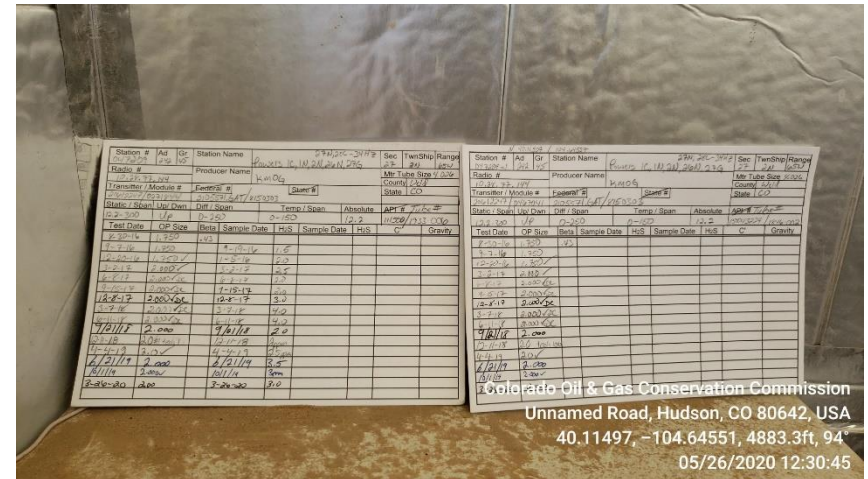 Station # Ad Gr Station Name Sec TwnShip Range
Powers 1C, 1N, 2N, 27 2N 65W
Radio # Producer Name Mtr Tube Size 4.026
KMOG County Weld
Transmitter / Module # Federal # State # State CO
Static / Span Up/ Dwn Diff / Span Temp / Span Absolute API # Tube #
12.2-300 Up 0-250 0-150 12.2
Test Date OP Size Beta Sample Date H₂S Sample Date H₂S C' Gravity
8-30-16 1.750 .43
9-7-16 1.750 9-19-16 1.5
12-20-16 1.750✓ 2.0
3-2-17 2.000✓ 3-2-17 2.5
6-8-17 2.000✓ 6-8-17
9-15-17 2.000✓DC 9-15-17
12-8-17 2.000✓DC 12-8-17 3.0
3-7-18 2.000✓DC 3-7-18 4.0
6-11-18 2.000✓DC 6-11-18 4.0
9/21/18 2.000 9/21/18 2.0
12-11-18 12-11-18
4-4-19 2.0✓ 4-4-19
6/21/19 2.000 6/21/19 3.5
10/1/19 2.000✓ 10/1/19
3-26-20 2.00 3-26-20 3.0
Station # Ad Gr Station Name Sec TwnShip Range
Powers 1C, 1N, 2N, 27 2N 65W
Radio # Producer Name Mtr Tube Size 4.026
KMOG County Weld
Transmitter / Module # Federal # State # State CO
Static / Span Up/ Dwn Diff / Span Temp / Span Absolute API # Tube #
Up 0-250 0-150 12.2
Test Date OP Size Beta Sample Date H₂S Sample Date H₂S C' Gravity
8-30-16 1.750 .43
9-7-16 1.750
12-20-16 1.750✓
3-2-17 2.000✓
6-8-17 2.000✓
9-15-17 2.000✓DC
12-8-17 2.000✓DC
3-7-18 2.000✓DC
6-11-18 2.000✓DC
9/21/18 2.000
12-11-18 2.0
4-4-19 2.0✓
6/21/19 2.000
10/1/19 2.000✓
Colorado Oil & Gas Conservation Commission
Unnamed Road, Hudson, CO 80642, USA
40.11497, −104.64551, 4883.3ft, 94°
05/26/2020 12:30:45